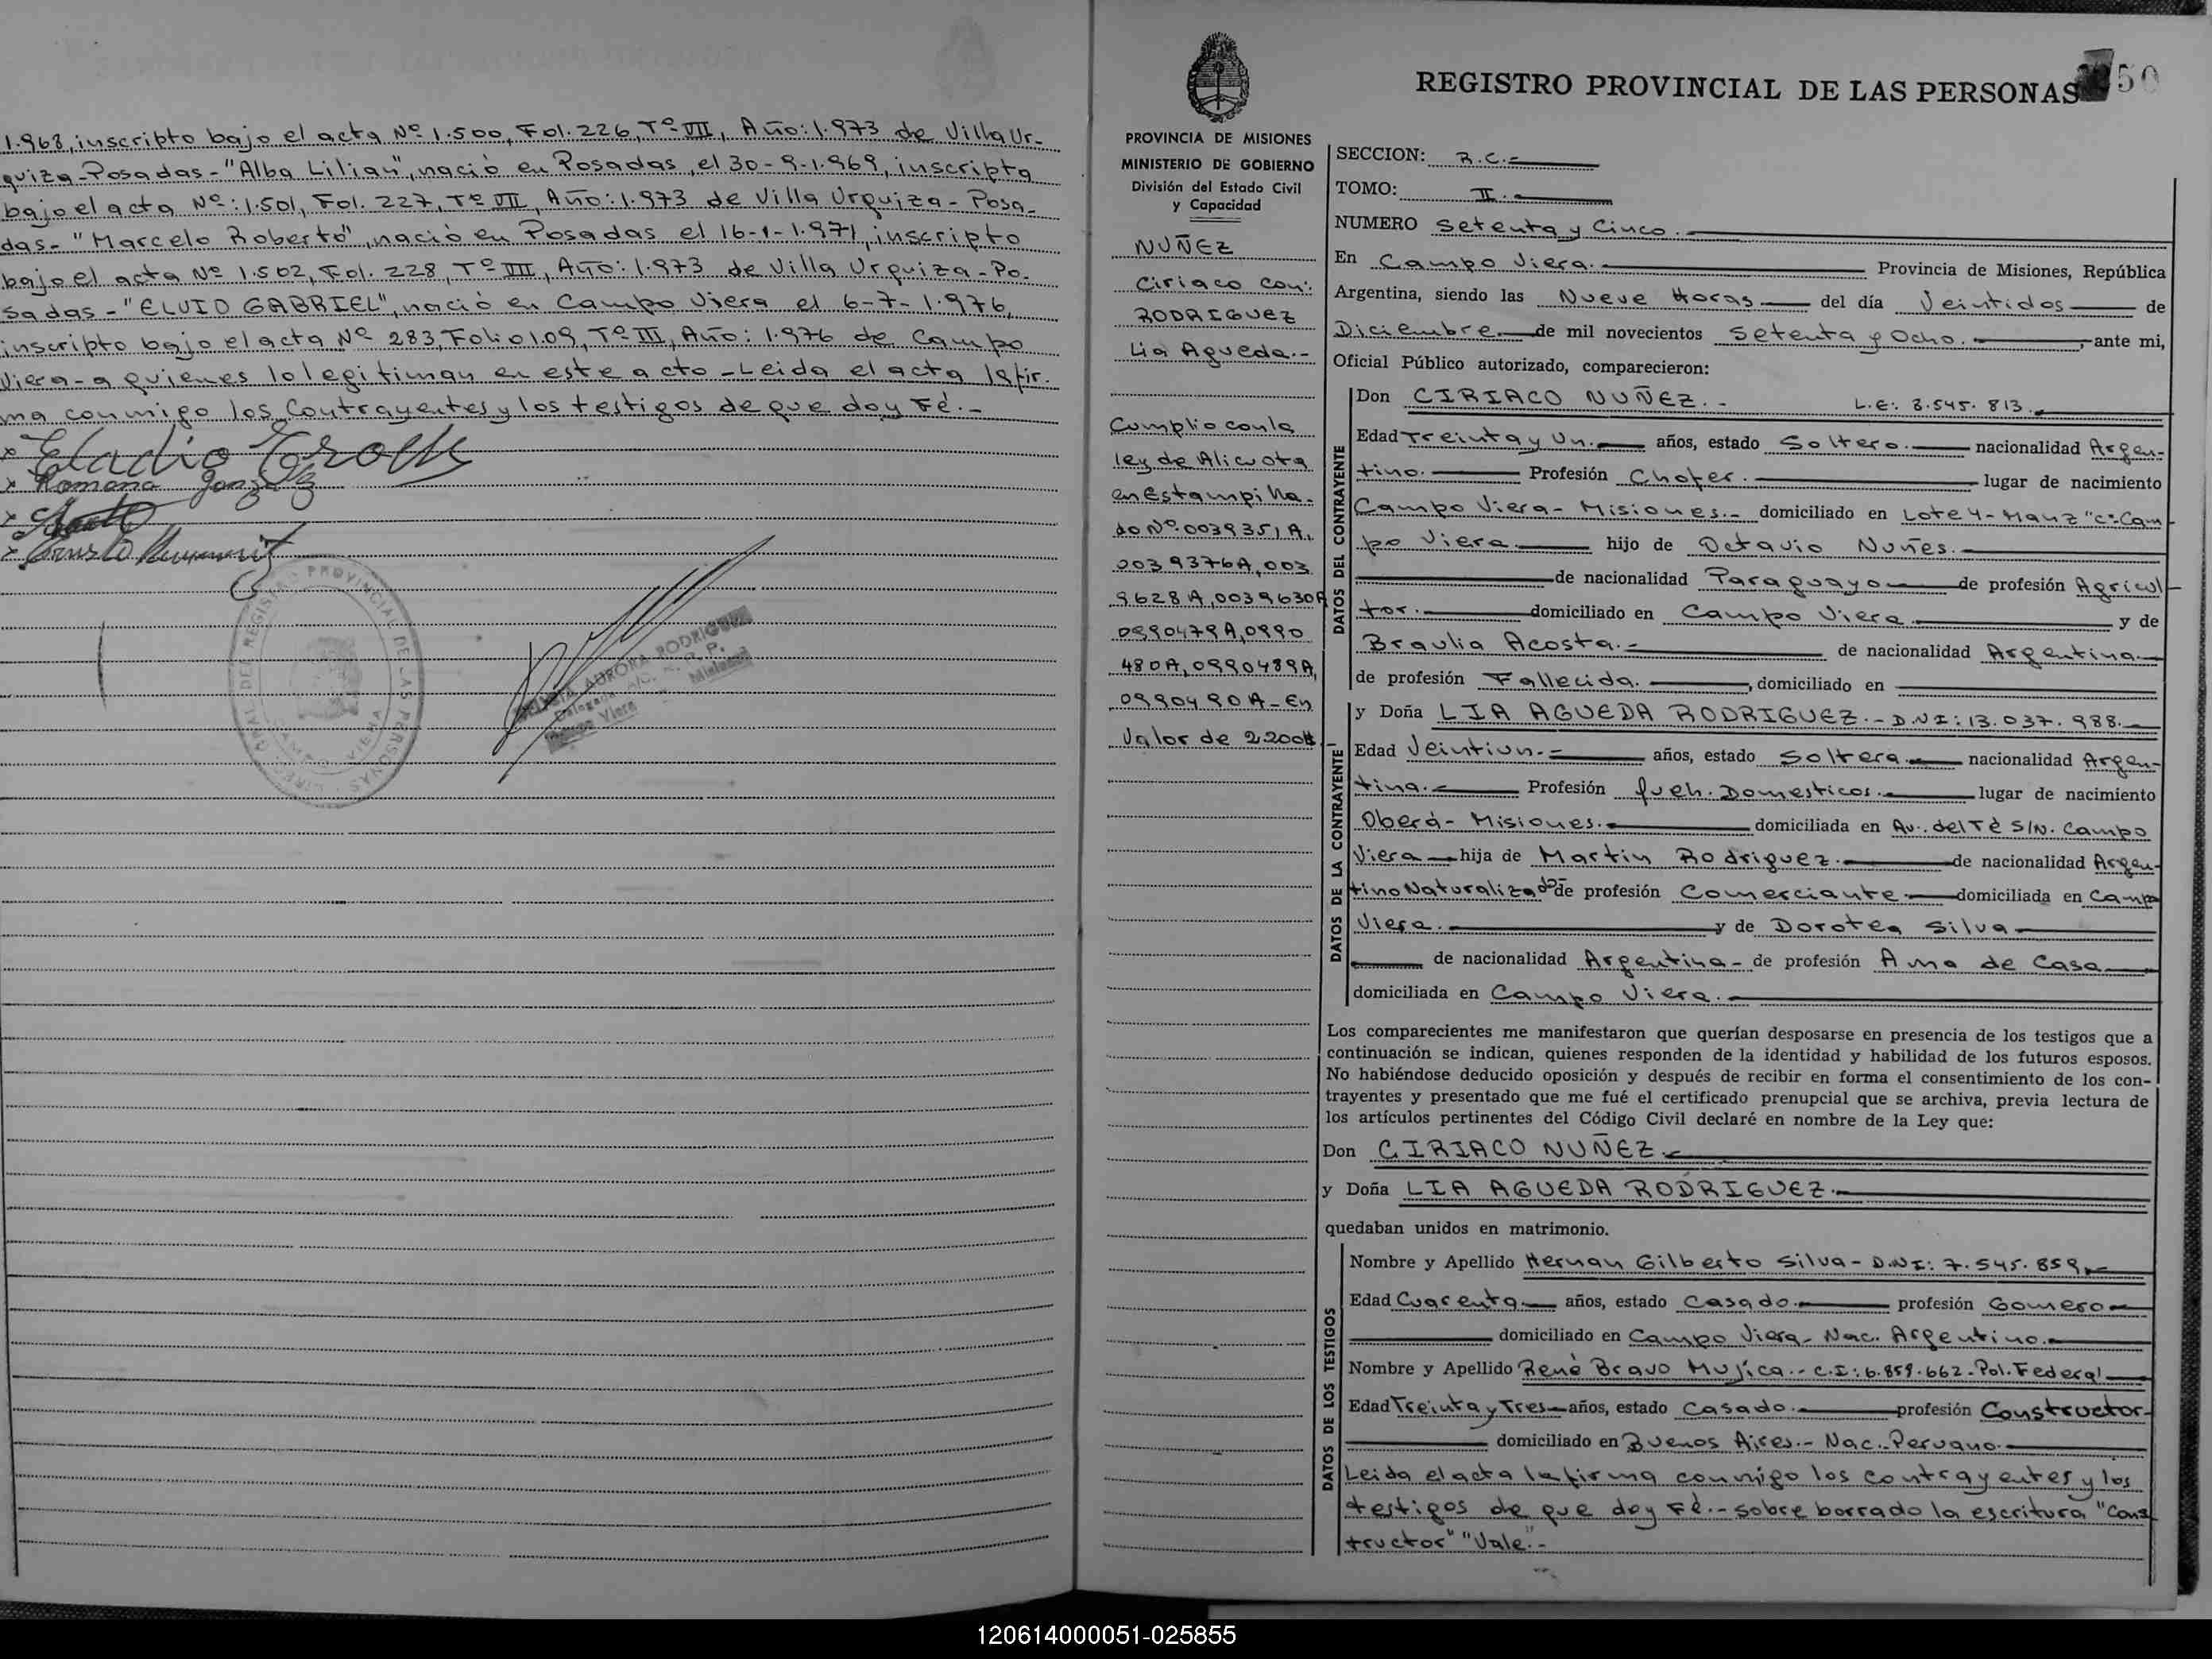 1.968, inscripto bajo el acta Nº 1.500, Fol. 226, Tº VII, Año: 1.973 de Villa Ur-
quiza-Posadas-"Alba Lilian", nació en Posadas, el 30-9-1.969, inscripta
bajo el acta Nº: 1.501, Fol. 227, Tº VII, Año: 1.973 de Villa Urquiza - Posa-
das- "Marcelo Roberto", nació en Posadas el 16-1-1.971, inscripto
bajo el acta Nº 1.502, Fol. 228, Tº VII, Año: 1.973 de Villa Urquiza - Po-
sadas - "ELUID GABRIEL", nació en Campo Viera el 6-7-1.976,
inscripto bajo el acta Nº 283, Folio 1.09, Tº III, Año: 1.976 de Campo
Viera - a quienes lo legitiman en este acto - Leida el acta la fir-
ma conmigo los Contrayentes y los testigos de que doy Fé.-
x Eladio
x Romana
REGISTRO PROVINCIAL DE LAS PERSONAS
CAMPO VIERA
AURORA RODRIGUEZ
Delegada A/C. R. P.
Campo Viera Misiones
50
REGISTRO PROVINCIAL DE LAS PERSONAS
PROVINCIA DE MISIONES
MINISTERIO DE GOBIERNO
División del Estado Civil
y Capacidad
NUÑEZ
Ciriaco con:
RODRIGUEZ
Lia Agueda.-
Cumplio con la
ley de Alicuota
en Estampilla-
do Nº.0039351A,
0039376A, 003
9628A, 0039630A
0990479A, 0990
480A, 0990489A,
0990490A - En
Valor de 2.200$
SECCION: R.C.-
TOMO: II.-
NUMERO Setenta y Cinco.-
En Campo Viera.- Provincia de Misiones, República
Argentina, siendo las Nueve Horas del día Veintidos de
Diciembre de mil novecientos Setenta y Ocho.-, ante mi,
Oficial Público autorizado, comparecieron:
DATOS DEL CONTRAYENTE
Don CIRIACO NUÑEZ.- L.E: 8.545.813.
Edad Treinta y Un. años, estado Soltero. nacionalidad Argen-
tino. Profesión Chofer. lugar de nacimiento
Campo Viera - Misiones.- domiciliado en Lote 4 - Manz "C": Cam-
po Viera. hijo de Octavio Nuñes.
de nacionalidad Paraguayo de profesión Agricul-
tor. domiciliado en Campo Viera y de
Braulia Acosta.- de nacionalidad Argentina
de profesión Fallecida., domiciliado en
DATOS DE LA CONTRAYENTE
y Doña LIA AGUEDA RODRIGUEZ.- D.N.I: 13.037.988.
Edad Veintiun.- años, estado Soltera. nacionalidad Argen-
tina.- Profesión Queh. Domesticos. lugar de nacimiento
Oberá - Misiones. domiciliada en Av. del Té S/N. Campo
Viera hija de Martin Rodriguez. de nacionalidad Argen-
tino Naturalizado de profesión Comerciante domiciliada en Campo
Viera. y de Dorotea Silva
de nacionalidad Argentina - de profesión Ama de Casa
domiciliada en Campo Viera.-
Los comparecientes me manifestaron que querían desposarse en presencia de los testigos que a
continuación se indican, quienes responden de la identidad y habilidad de los futuros esposos.
No habiéndose deducido oposición y después de recibir en forma el consentimiento de los con-
trayentes y presentado que me fué el certificado prenupcial que se archiva, previa lectura de
los artículos pertinentes del Código Civil declaré en nombre de la Ley que:
Don CIRIACO NUÑEZ.
y Doña LIA AGUEDA RODRIGUEZ.
quedaban unidos en matrimonio.
DATOS DE LOS TESTIGOS
Nombre y Apellido Hernan Gilberto Silva - D.N.I: 7.545.859.
Edad Cuarenta años, estado Casado. profesión Gomero
domiciliado en Campo Viera - Nac. Argentino.
Nombre y Apellido René Bravo Mujica.- C.I: 6.859.662 - Pol. Federal
Edad Treinta y Tres años, estado Casado. profesión Constructor
domiciliado en Buenos Aires.- Nac. Peruano.
Leida el acta la firma conmigo los contrayentes y los
testigos de que doy Fé.- sobre borrado la escritura "Cons
tructor" "Vale".-
120614000051-025855